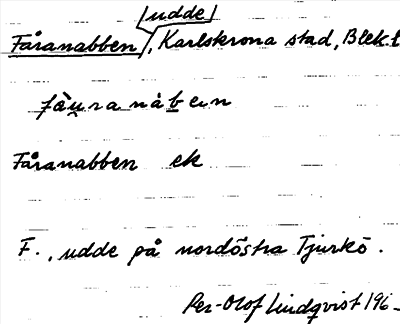 /udde/
Fåranabben, Karlskrona stad, Blek.
fàu̯ranàben
Fåranabben ek
F., udde på nordöstra Tjurkö.
Per-Olof Lindqvist 196